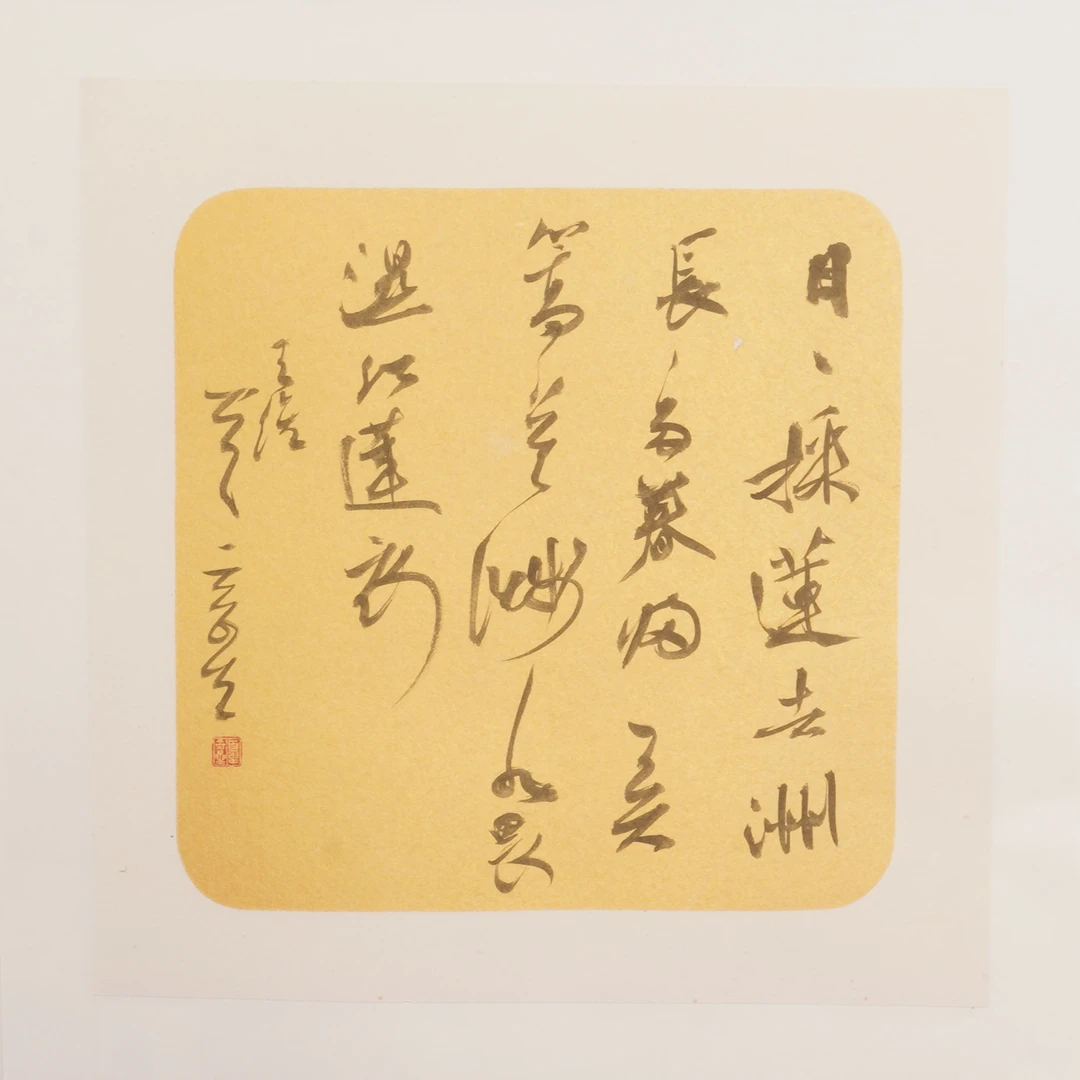 日々採蓮去洲
長多暮歸弄
篙莫濺水畏
濕紅蓮衣
王維